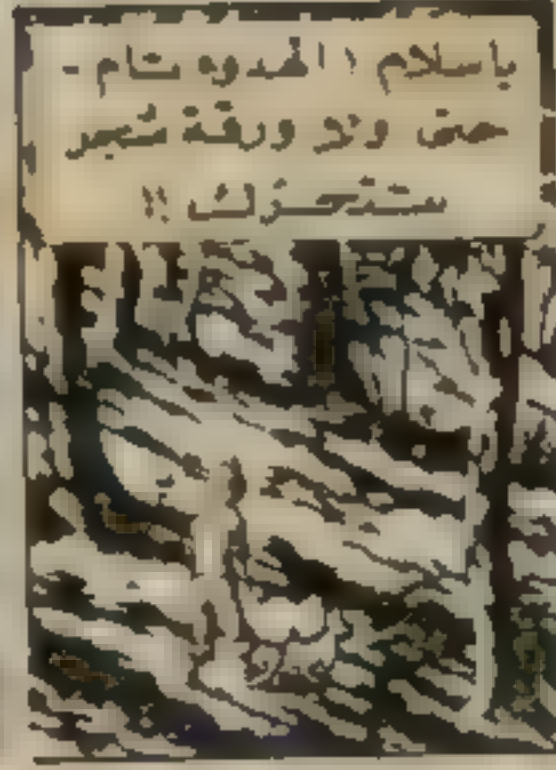 ياسلام ! الهدوء تام -
حتى ولا ورقة شجر
ستتحرك !!